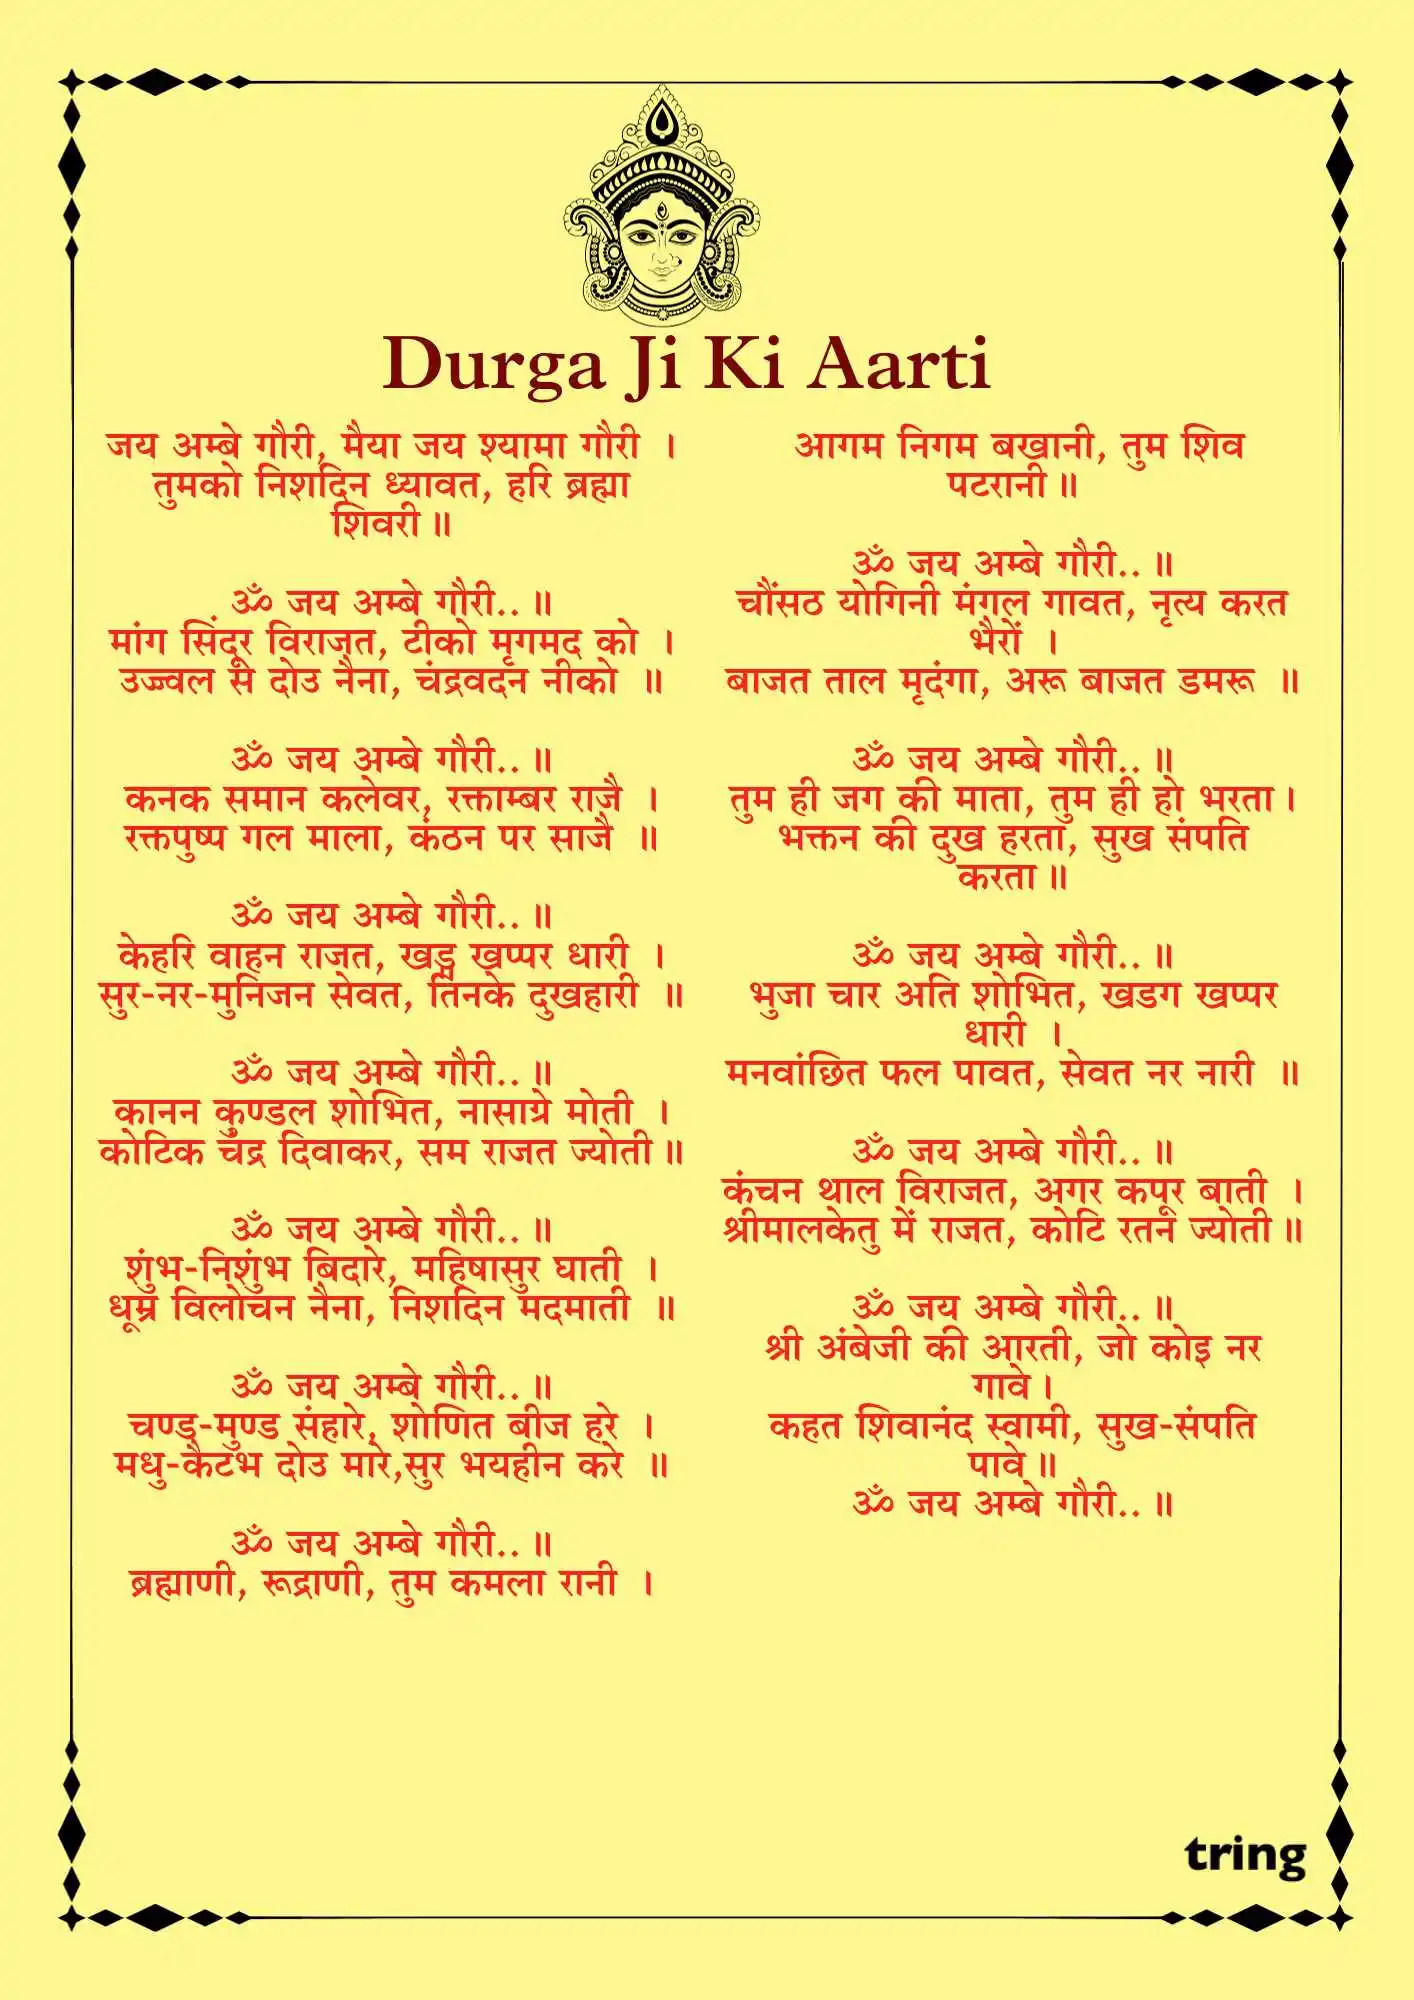 Durga Ji Ki Aarti
जय अम्बे गौरी, मैया जय श्यामा गौरी ।
तुमको निशदिन ध्यावत, हरि ब्रह्मा
शिवरी॥
ॐ जय अम्बे गौरी..॥
मांग सिंदूर विराजत, टीको मृगमद को ।
उज्ज्वल से दोउ नैना, चंद्रवदन नीको ॥
ॐ जय अम्बे गौरी..॥
कनक समान कलेवर, रक्ताम्बर राजै ।
रक्तपुष्प गल माला, कंठन पर साजै ॥
ॐ जय अम्बे गौरी..॥
केहरि वाहन राजत, खड्ग खप्पर धारी ।
सुर-नर-मुनिजन सेवत, तिनके दुखहारी ॥
ॐ जय अम्बे गौरी..॥
कानन कुण्डल शोभित, नासाग्रे मोती ।
कोटिक चंद्र दिवाकर, सम राजत ज्योती॥
ॐ जय अम्बे गौरी..॥
शुंभ-निशुंभ बिदारे, महिषासुर घाती ।
धूम्र विलोचन नैना, निशदिन मदमाती ॥
ॐ जय अम्बे गौरी..॥
चण्ड-मुण्ड संहारे, शोणित बीज हरे ।
मधु-कैटभ दोउ मारे,सुर भयहीन करे ॥
ॐ जय अम्बे गौरी..॥
ब्रह्माणी, रूद्राणी, तुम कमला रानी ।
आगम निगम बखानी, तुम शिव
पटरानी॥
ॐ जय अम्बे गौरी..॥
चौंसठ योगिनी मंगल गावत, नृत्य करत
भैरों ।
बाजत ताल मृदंगा, अरू बाजत डमरू ॥
ॐ जय अम्बे गौरी..॥
तुम ही जग की माता, तुम ही हो भरता।
भक्तन की दुख हरता, सुख संपति
करता॥
ॐ जय अम्बे गौरी..॥
भुजा चार अति शोभित, खडग खप्पर
धारी ।
मनवांछित फल पावत, सेवत नर नारी ॥
ॐ जय अम्बे गौरी..॥
कंचन थाल विराजत, अगर कपूर बाती ।
श्रीमालकेतु में राजत, कोटि रतन ज्योती॥
ॐ जय अम्बे गौरी..॥
श्री अंबेजी की आरती, जो कोइ नर
गावे।
कहत शिवानंद स्वामी, सुख-संपति
पावे॥
ॐ जय अम्बे गौरी..॥
tring